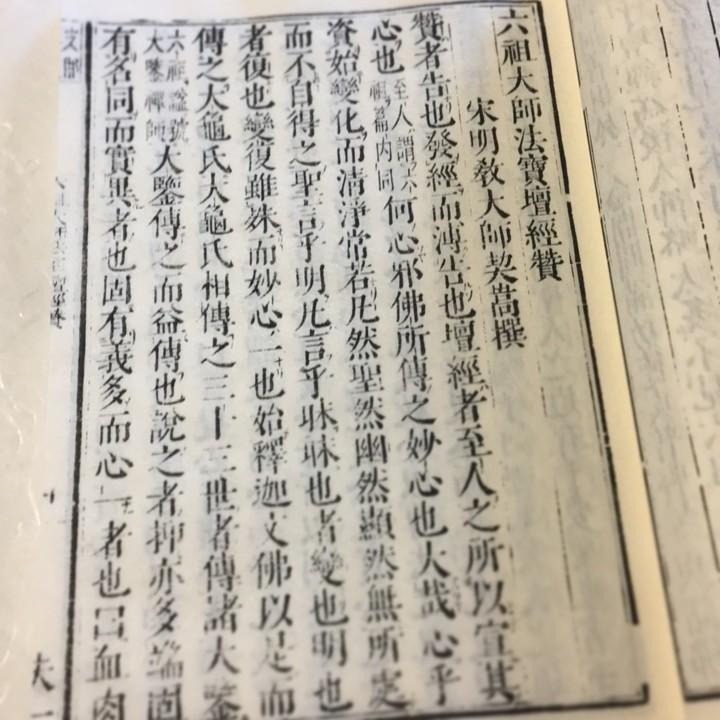 六祖大師法寶壇經贊
宋明教大師契嵩撰
贊者告也發經而溥告也壇經者至人之所以宣其
心也至人謂六祖篇內同何心邪佛所傳之妙心也大哉心乎
資始變化而清淨常若凡然聖然幽然顯然無所
而不自得之聖言乎明凡言乎昧昧也者變也明也
者復也變復雖殊而妙心一也始釋迦文佛以是而
傳之大龜氏大龜氏相傳之三十三世者傳諸大鑒
六祖諡號大鑒禪師大鑒傳之而益傳也說之者抑亦多端固
有名同而實異者也固有義多而心一者也曰血肉